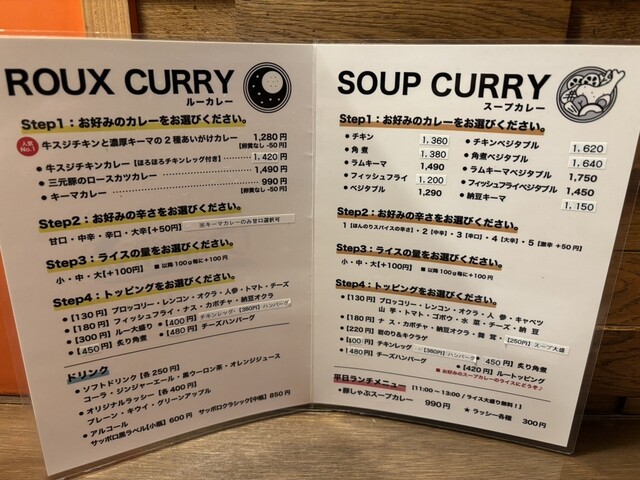 ROUX CURRY
ルーカレー
Step1：お好みのカレーをお選びください。
人気No.1
牛スジチキンと濃厚キーマの２種あいがけカレー 1,280円
【卵黄なし -50円】
・牛スジチキンカレー【ほろほろチキンレッグ付き】 1.420円
・三元豚のロースカツカレー 1,490円
・キーマカレー 990円
【卵黄なし -50円】
Step2：お好みの辛さをお選びください。
甘口・中辛・辛口・大辛【+50円】 ※キーマカレーのみ甘口選択可
Step3：ライスの量をお選びください。
小・中・大【+100円】 ■以降100g毎に+100円
Step4：トッピングをお選びください。
・【130円】ブロッコリー・レンコン・オクラ・人参・トマト・チーズ
・【180円】フィッシュフライ・ナス・カボチャ・納豆オクラ
・【300円】ルー大盛り ・【400円】チキンレッグ・【360円】ハンバーグ
・【450円】炙り角煮 ・【480円】チーズハンバーグ
ドリンク
・ソフトドリンク【各250円】
コーラ・ジンジャーエール・黒ウーロン茶・オレンジジュース
・オリジナルラッシー【各400円】
プレーン・キウイ・グリーンアップル
・アルコール
サッポロ黒ラベル【小瓶】600円 サッポロクラシック【中瓶】850円
SOUP CURRY
スープカレー
Step1：お好みのカレーをお選びください。
・チキン 1.360
・角煮 1.380
・ラムキーマ 1,490
・フィッシュフライ 1.200
・ベジタブル 1,290
・チキンベジタブル 1.620
・角煮ベジタブル 1.640
・ラムキーマベジタブル 1,750
・フィッシュフライベジタブル 1,450
・納豆キーマ 1.150
Step2：お好みの辛さをお選びください。
1【ほんのりスパイスの辛さ】・2【中辛】・3【辛口】・4【大辛】・5【激辛 +50円】
Step3：ライスの量をお選びください。
小・中・大【+100円】 ■以降100g毎に+100円
Step4：トッピングをお選びください。
・【130円】ブロッコリー・レンコン・オクラ・人 参・キャベツ
山 芋・トマト・ゴボウ・水 菜・チーズ・納 豆
・【180円】ナ ス・カボチャ・納豆オクラ・舞 茸
・【220円】岩のり&キクラゲ 【250円】スープ大盛
チキンレッグ・【360円】ハンバーグ 450円】炙り角煮
・【480円】チーズハンバーグ ・【420円】ルートッピング
■お好みのスープカレーのライスにどうぞ♪
平日ランチメニュー 【11:00～13:00／ライス大盛り無料！】
・豚しゃぶスープカレー 990円 ★ラッシー各種 300円